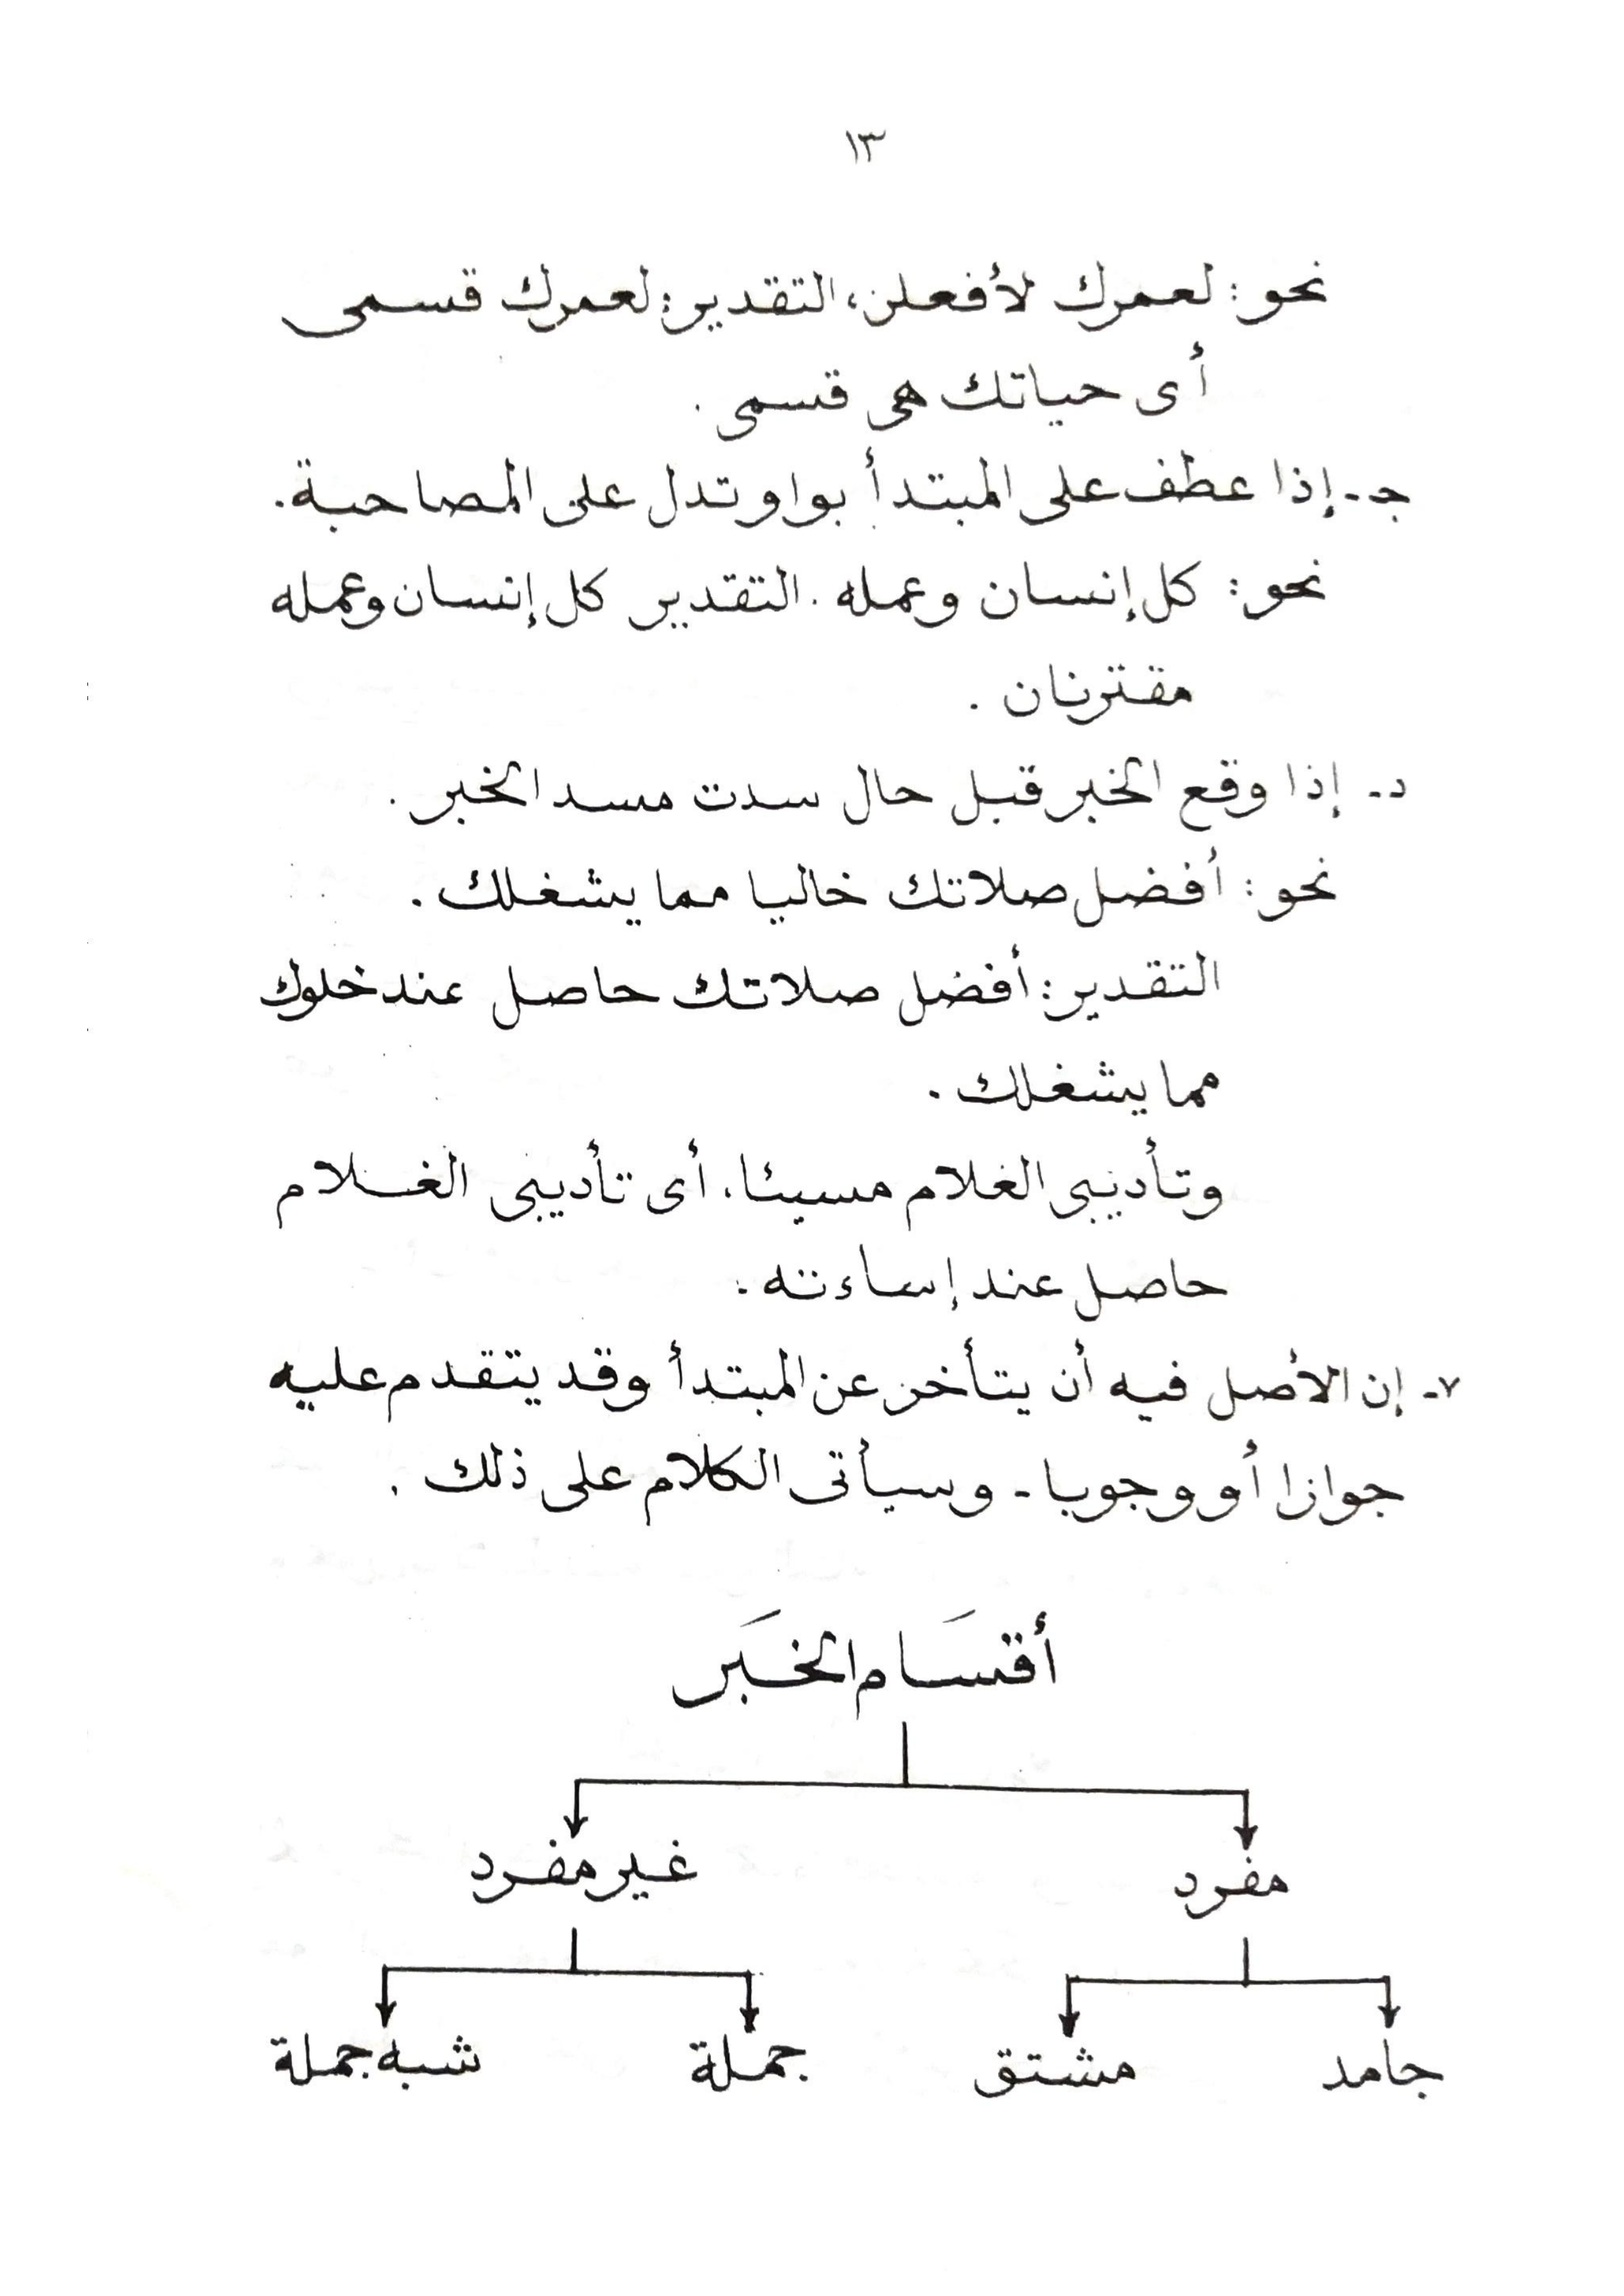 ١٣
نحو: لعمرك لأفعلن، التقدير: لعمرك قسمى
أى حياتك هى قسمى.
جـ- إذا عطف على المبتدأ بواو تدل على المصاحبة.
نحو: كل إنسان وعمله. التقدير كل إنسان وعمله
مقترنان.
د- إذا وقع الخبر قبل حال سدت مسد الخبر.
نحو: أفضل صلاتك خاليا مما يشغلك.
التقدير: أفضل صلاتك حاصل عند خلوك
مما يشغلك.
وتأديبى الغلام مسيئا، أى تأديبى الغلام
حاصل عند إساءته.
٧- إن الأصل فيه أن يتأخر عن المبتدأ وقد يتقدم عليه
جوازا أو وجوبا - وسيأتى الكلام على ذلك.
أقسَام الخبَر
مفرد غير مفرد
جامد مشتق جملة شبه جملة